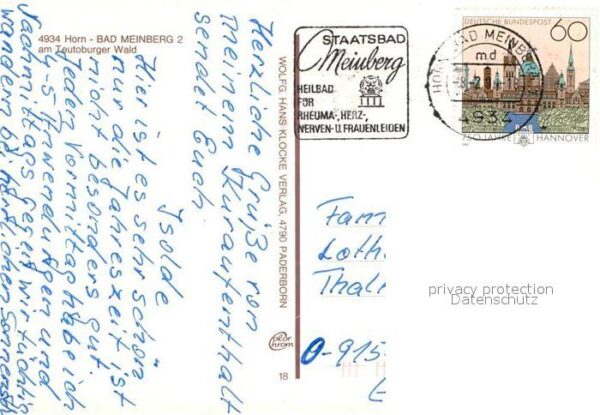 4934 Horn - BAD MEINBERG 2
am Teutoburger Wald
Herzliche Grüße von
meinem Kuraufenthalt
sendet Euch
Isolde
Hier ist es sehr schön
nur die Jahreszeit ist
nicht besonders gut.
Jeden Vormittag hab ich
4-5 Anwendungen und
Nachmittags gesund wir tüchtig
wandern bei
WOLFG. HANS KLOCKE VERLAG, 4790 PADERBORN
color
chrom
18
STAATSBAD
Meinberg
HEILBAD
FÜR
RHEUMA-, HERZ-,
NERVEN- U. FRAUENLEIDEN
HORN-BAD MEINBERG
md
4934
DEUTSCHE BUNDESPOST
60
750 JAHRE HANNOVER
Fam
Loth
Thal
O-915
privacy protection
Datenschutz